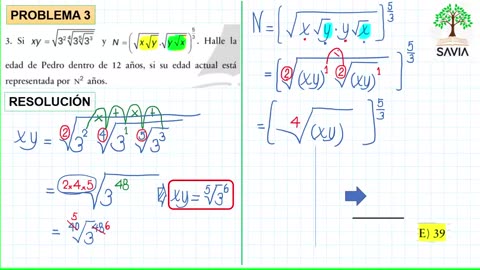 PROBLEMA 3
3. Si xy = √(3² ∜(3 ⁵√3³)) y N = (√(x√y) · √(y√x))^(5/3). Halle la
edad de Pedro dentro de 12 años, si su edad actual está
representada por N² años.
RESOLUCIÓN
xy = ②√3² ④√3¹ ⑤√3³
x + x +
= 2×4×5 √3^48
xy = ⁵√3⁶
= ⁵ 40 √3^48 6
N = [√(x√y · y√x)]^(5/3)
= [②√(xy)¹ ②√(xy)¹]^(5/3)
= [⁴√(xy)]^(5/3)
SAVIA
E) 39